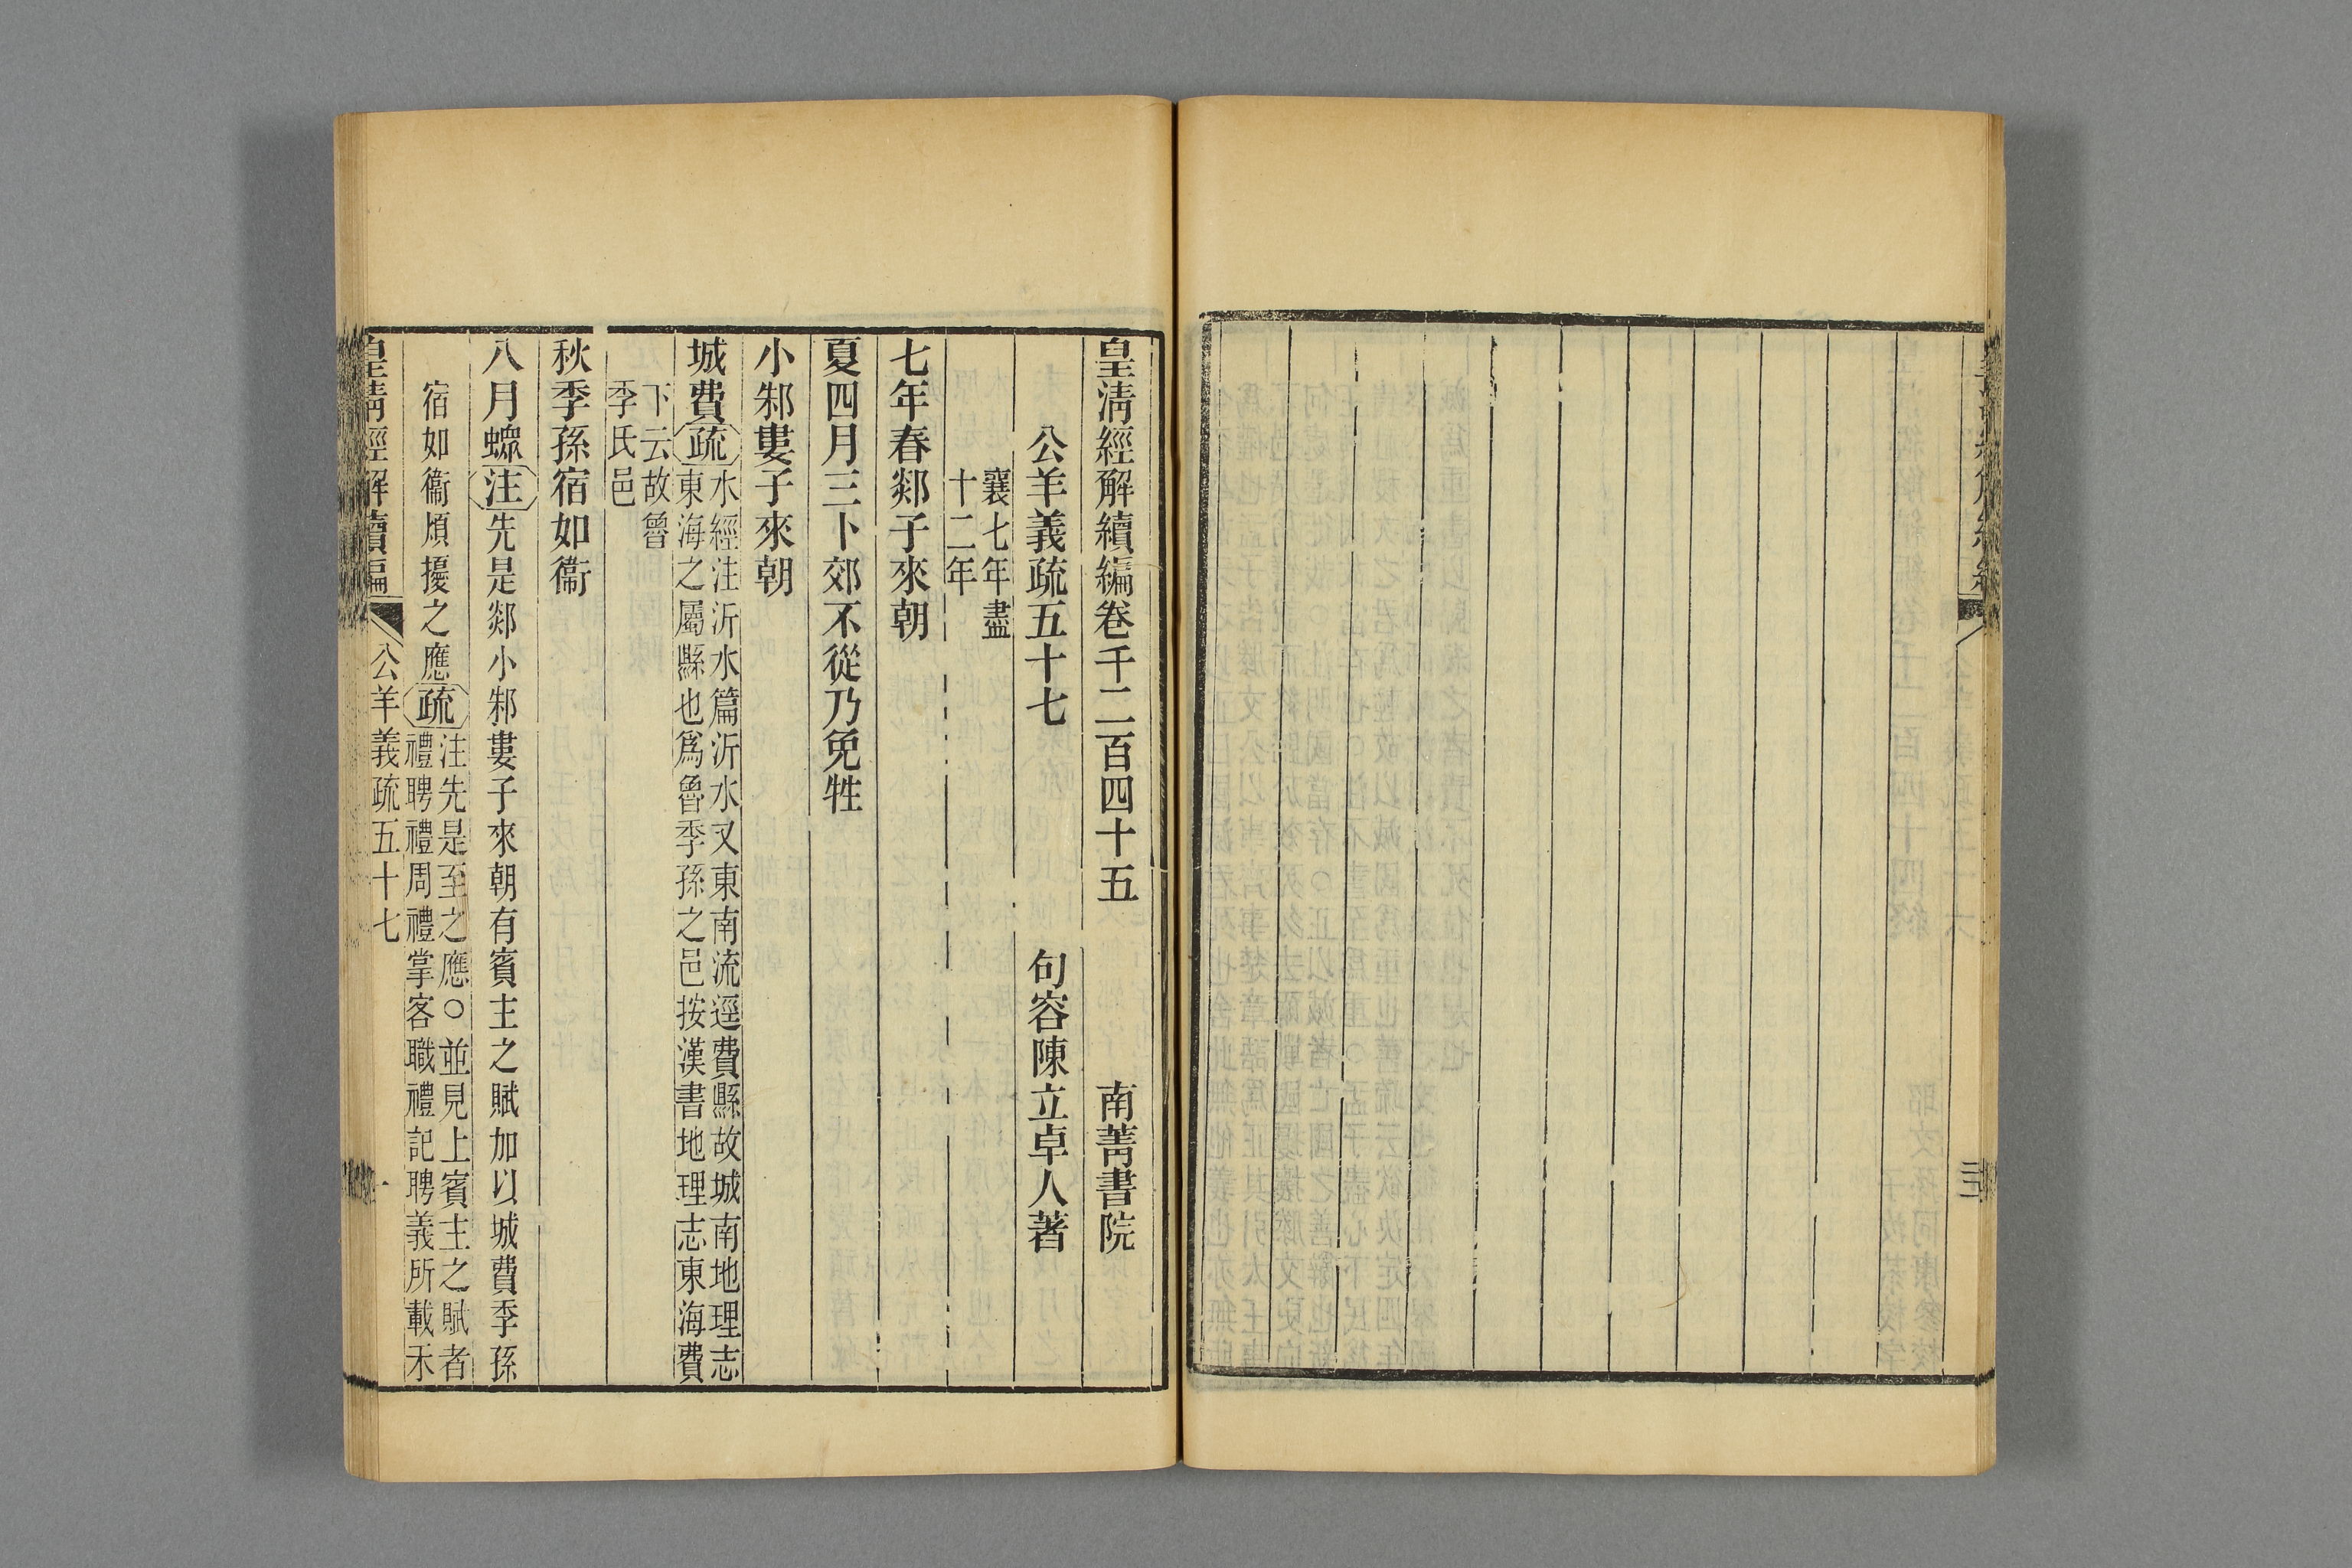 皇淸經解續編卷千二百四十五
南菁書院
公羊義疏五十七
句容陳立卓人著
襄七年盡
十二年
七年春郯子來朝
夏四月三卜郊不從乃免牲
小邾婁子來朝
城費疏
水經注沂水篇沂水又東南流逕費縣故城南地理志
東海之屬縣也爲魯季孫之邑按漢書地理志東海費
下云故魯
季氏邑
秋季孫宿如衞
八月螽注先是郯小邾婁子來朝有賓主之賦加以城費季孫
宿如衞煩擾之應疏
注先是至之應○並見上賓主之賦者
禮聘禮周禮掌客職禮記聘義所載禾
皇淸經解續編
公羊義疏五十七
一